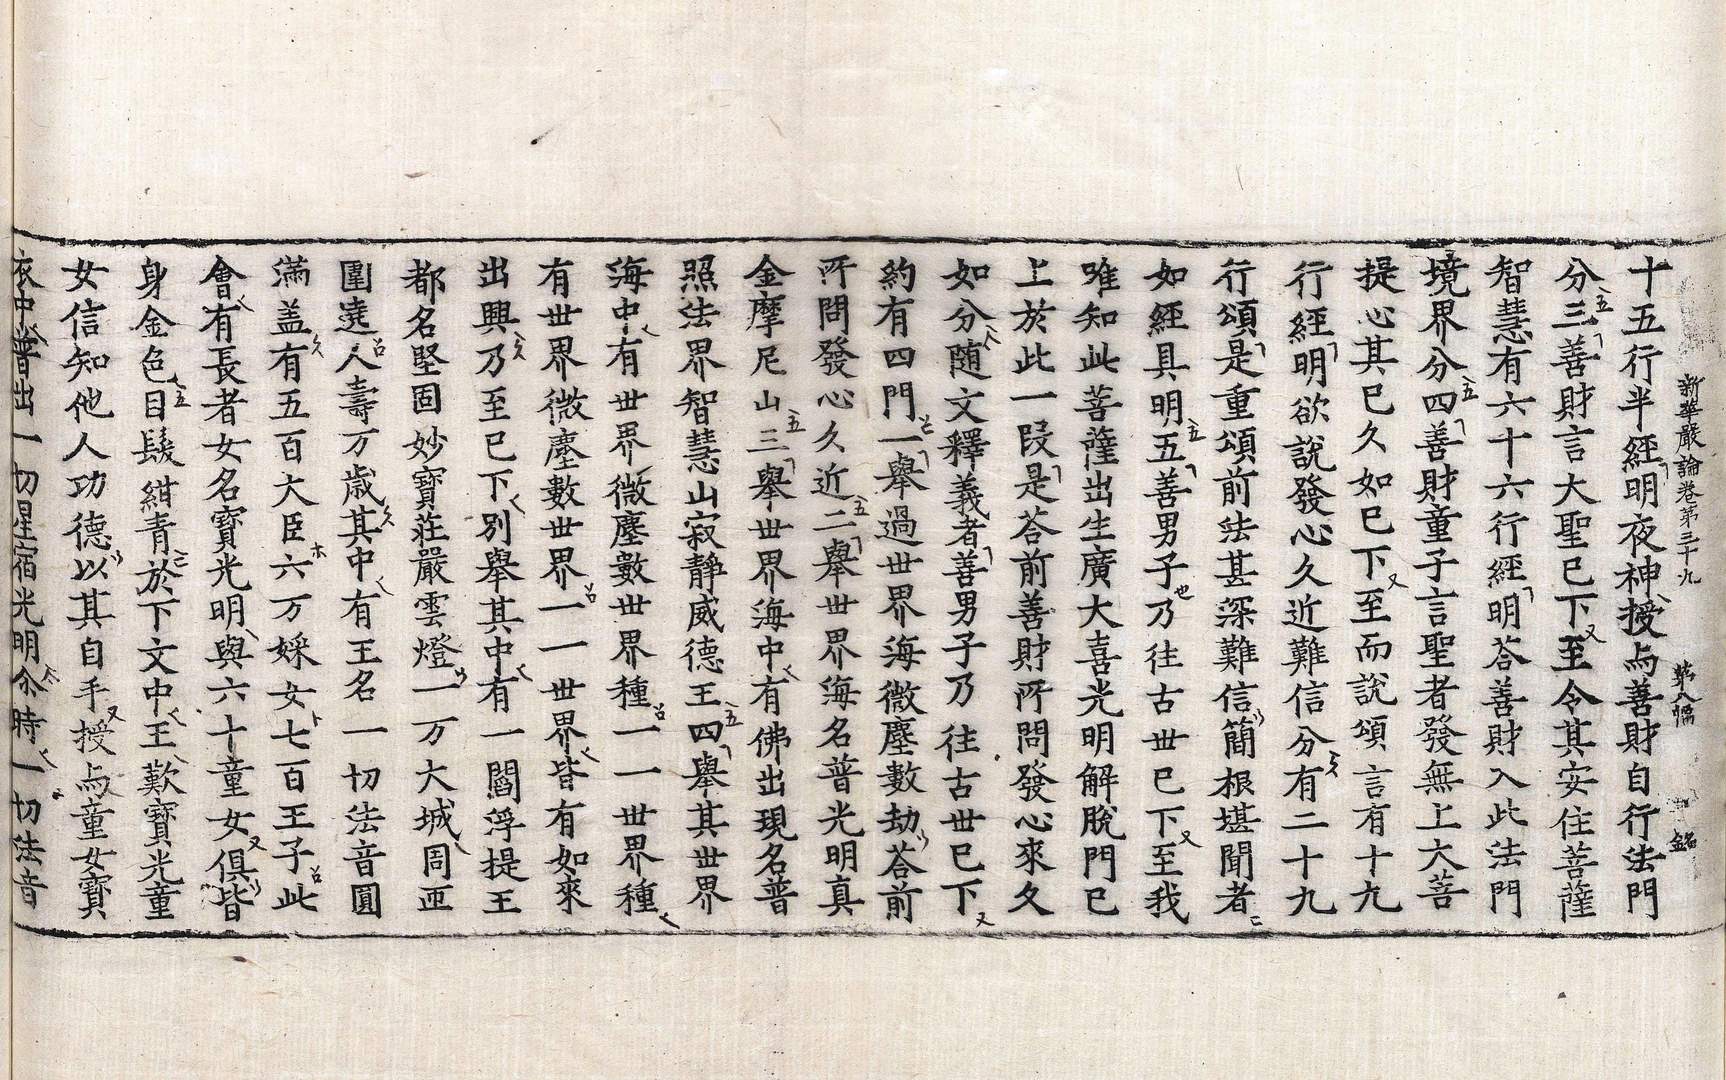 新華嚴論卷第三十九　第八幅　銘
十五行半經明夜神授与善財自行法門
分三善財言大聖已下至令其安住菩薩
智慧有六十六行經明荅善財入此法門
境界分四善財童子言聖者發無上大菩
提心其已久如已下至而說頌言有十九
行經明欲說發心久近難信分有二十九
行頌是重頌前法甚深難信簡根堪聞者
如經具明五善男子乃往古世已下至我
唯知此菩薩出生廣大喜光明解脫門已
上於此一段是荅前善財所問發心來久
如分随文釋義者善男子乃往古世已下
約有四門一舉過世界海微塵數劫荅前
所問發心久近二舉世界海名普光明真
金摩尼山三舉世界海中有佛出現名普
照法界智慧山寂靜威德王四舉其世界
海中有世界微塵數世界種一一世界種
有世界微塵數世界一一世界皆有如來
出興乃至已下別舉其中有一閻浮提王
都名堅固妙寶莊嚴雲燈一万大城周帀
圍遶人壽万歲其中有王名一切法音圓
滿盖有五百大臣六万婇女七百王子此
會有長者女名寶光明與六十童女俱皆
身金色目髮紺青於下文中王歎寶光童
女信知他人功德以其自手授与童女寶
衣中普出一切星宿光明尒時一切法音